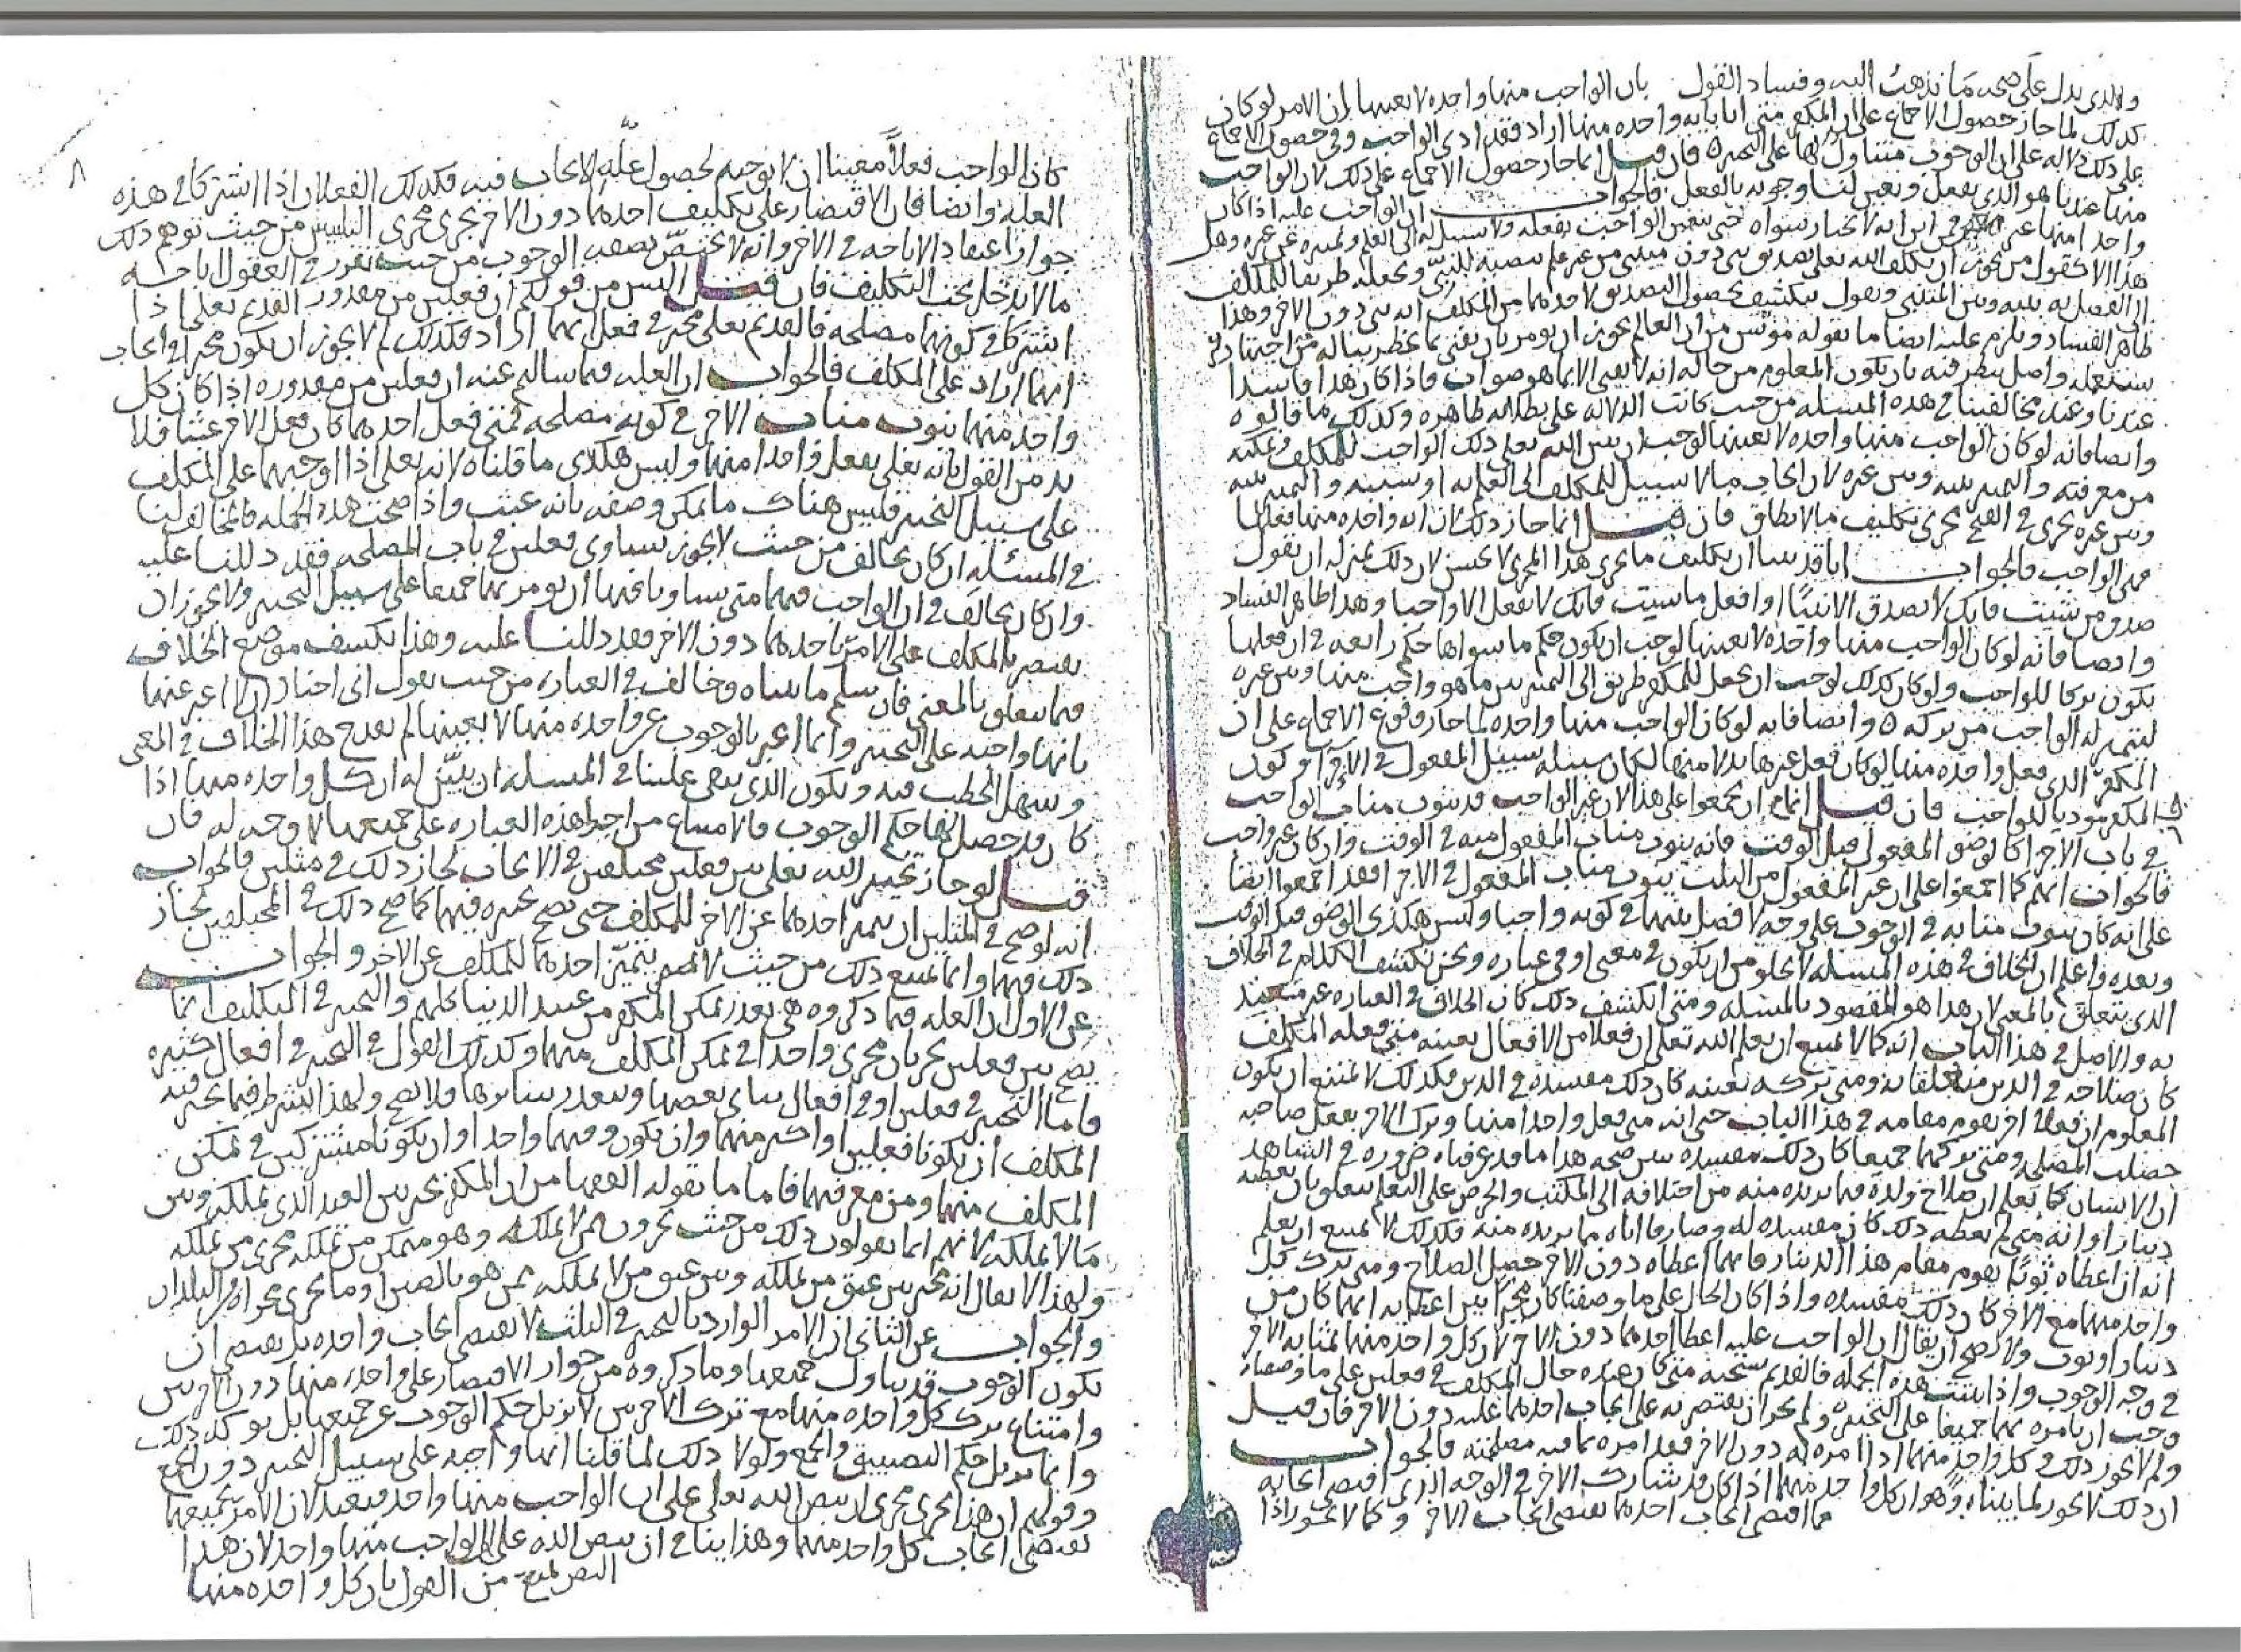 والذي يدل على صحه ما نذهب اليه وفساد القول بان الواجب منها واحده لا بعينها ان الامر لو كان
كذلك لما جاز حصول الاجماع على ان المكفر متى اتا بايه واحده منها اراد فقد ادى الواجب وفي حصول الاجماع
على ذلك دلاله على ان الوجوب متناول لها على التخيير فان قيل انما جاز حصول الاجماع على ذلك لان الواجب
منها عندنا هو الذي يفعل ويتعين لنا وجوبه بالفعل فالجواب ان الواجب عليه اذا كان
واحدا منها غير من اين انه لا يختار سواه حتى يتعين الواجب بفعله ولا سبيل له الى العلم وتميزه عن غيره وهل
هذا الا كقول من يجوز ان يكلف الله تعلى تصديق نبي دون متنبي من غير علم نصبه للنبي وجعله طريقا للمكلف
الى الفصل به بينه وبين المتنبي ويقول ينكشف بحصول التصديق لاحدهما من المكلف انه نبي دون الاخر وهذا
ظاهر الفساد ويلزم عليه ايضا ما يقوله مونس من ان العالم يجوز ان يومر بان يفتي بما يخطر بباله من اجتهاد
يستعمله واصل ينظر فيه بان يكون المعلوم من حاله انه لا يفتي الا بما هو صواب فاذا كان هذا فاسدا
عندنا وعند مخالفينا في هذه المسئله من حيث كانت الدلاله على بطلانه ظاهره وكذلك ما قالوه
وايضا فانه لو كان الواجب منها واحده لا بعينها لوجب ان يبين الله تعلى ذلك الواجب للمكلف ويمكنه
من معرفته والتمييز بينه وبين غيره لان ايجاب ما لا سبيل للمكلف الى العلم به او سببه والتمييز بينه
وبين غيره يجري في القبح مجرى تكليف ما لا يطاق فان قيل انما جاز ذلك لان ايه واحده منها فعلها
فهي الواجب فالجواب انا قد بينا ان تكليف ما يجري هذا المجرى لا يحسن لان ذلك بمنزله ان يقول
صدق من شئت فانك لا تصدق الا نبيا او افعل ما شئت فانك لا تفعل الا واجبا وهذا ظاهر الفساد
وايضا فانه لو كان الواجب منها واحده لا بعينها لوجب ان يكون حكم ما سواها حكم رابعه في ان فعلها
يكون تركا للواجب ولو كان كذلك لوجب ان يجعل للمكفر طريق الى التمييز بين ما هو واجب منها وبين غيره
ليتميز له الواجب من تركه وايضا فانه لو كان الواجب منها واحده لما جاز وقوع الاجماع على ان
المكفر الذي فعل واحده منها لو كان فعل غيرها بدلا منها لكان سبيله سبيل المفعول في الاجزا وكون
المكفر موديا للواجب فان قيل انما ان يجمعوا على هذا لان غير الواجب قد ينوب مناب الواجب
في باب الاجزا كالوضو المفعول قبل الوقت فانه ينوب مناب المفعول منه في الوقت وان كان غير واجب
فالجواب انهم كما اجمعوا على ان غير المفعول من الثلث ينوب مناب المفعول في الاجزا فقد اجمعوا ايضا
على انه كان ينوب منابه في الوجوب على وجه لا فصل بينهما في كونه واجبا وليس هكذى الوضو قبل الوقت
وبعده واعلم ان الخلاف في هذه المسئله لا يخلو من ان يكون في معنى او في عباره ونحن نكشف الكلام في الخلاف
الذي يتعلق بالمعنى لان هذا هو المقصود بالمسئله ومتى انكشف ذلك كان الخلاف في العباره غير معتد
به والاصل في هذا الباب انه كما لا يمتنع ان يعلم الله تعلى ان فعلا من الافعال بعينه متى فعله المكلف
كان صلاحه في الدين متعلقا به ومتى تركه بعينه كان ذلك مفسده في الدين فكذلك لا يمتنع ان يكون
المعلوم ان فعلا اخر يقوم مقامه في هذا الباب حتى انه متى فعل واحدا منهما وترك الاخر بفعل صاحبه
حصلت المصلحه ومتى تركهما جميعا كان ذلك مفسده يبين صحه هذا ما قد عرفناه ضروره في الشاهد
ان الانسان كما يعلم ان صلاح ولده فيما يريده منه من اختلافه الى المكتب والحرص على التعلم يتعلق بان يعطيه
دينارا وانه متى لم يعطه ذلك كان مفسده له وصارفا اياه ما يريده منه فكذلك لا يمتنع ان يعلم
انه ان اعطاه ثوبا يقوم مقام هذا الدينار فايهما اعطاه دون الاخر حصل الصلاح ومتى ترك كل
واحد منهما مع الاخر كان ذلك مفسده واذا كان الحال على ما وصفنا كان مخيرا بين اعطايه ايهما كان من
دينار او ثوب ولا يصح ان يقال ان الواجب عليه اعطا احدهما دون الاخر لان كل واحد منهما بمثابه الاخر
في وجه الوجوب واذا ثبتت هذه الجمله فالقديم سبحنه متى كان عنده حال المكلف في فعلين على ما وصفناه
وجب ان يامره بهما جميعا على التخيير ولم يجز ان يقتصر به على ايجاب احدهما عليه دون الاخر فان قيل
ولم لا يجوز ذلك في كل واحد منهما اذا امره به دون الاخر فقد امره بما فيه مصلحته فالجواب
ان ذلك لا يجوز لما بيناه وهو ان كل واحد منهما اذا كان قد شارك الاخر في الوجه الذي اقتضى ايجابه
فما اقتضى ايجاب احدهما يقتضي ايجاب الاخر وكما لا يجوز اذا
٨
كان الواجب فعلا معينا ان لا نوجبه لحصول عله الايجاب فيه فكذلك الفعلان اذا اشتركا في هذه
العله وايضا فان الاقتصار على تكليف احدهما دون الاخر يجري مجرى التلبيس من حيث توهم ذلك
جواز اعتقاد الاباحه في الاخر وانه لا يختص بصفه الوجوب من حيث تقرر في العقول اباحه
ما لا يدخل تحت التكليف فان قيل اليس من قولكم ان فعلين من مقدور القديم تعلى اذا
اشتركا في كونهما مصلحه فالقديم تعلى مخير في فعل ايهما اراد فكذلك لم لا يجوز ان يكون مخيرا في ايجاب
ايهما اراد على المكلف فالجواب ان العله فيما سالتم عنه ان فعلين من مقدوره اذا كان كل
واحد منهما ينوب مناب الاخر في كونه مصلحه فمتى فعل احدهما كان فعل الاخر عبثا فلا
بد من القول بانه تعلى يفعل واحدا منهما وليس هكذى ما قلناه لانه تعلى اذا اوجبهما على المكلف
على سبيل التخيير فليس هناك ما يمكن وصفه بانه عبث واذا صحت هذه الجمله فالمخالف لنا
في المسئله ان كان يخالف من حيث لا يجوز تساوي فعلين في باب المصلحه فقد دللنا عليه
وان كان يخالف في ان الواجب فيهما متى تساويا فيها ان يومر بهما جميعا على سبيل التخيير ولا يجوز ان
يقتصر بالمكلف على الامر باحدهما دون الاخر فقد دللنا عليه وهذا يكشف موضع الخلاف
فيما يتعلق بالمعنى فان سلم ما بيناه وخالف في العباره من حيث يقول اني اختار الا اعبر عنها
بانها واجبه على التخيير وانما اعبر بالوجوب عن واحده منها لا بعينها لم يقدح هذا الخلاف في المعنى
وسهل الخطب فيه ويكون الذي يبقى علينا في المسئله ان نبين له ان كل واحده منها اذا
كان قد حصل لها حكم الوجوب فالامتناع من اجرا هذه العباره على جميعها لا وجه له فان
قيل لو جاز تخيير الله تعلى بين فعلين مختلفين في الايجاب لجاز ذلك في مثلين فالجواب
انه لو صح في المثلين ان يتميز احدهما عن الاخر للمكلف حتى يصح تخييره فيهما كما صح ذلك في المختلفين لجاز
ذلك فيهما وانما يمتنع ذلك من حيث لا يتميز احدهما للمكلف عن الاخر والجواب
عن الاول ان العله فيما ذكروه هي تعذر تمكن المكفر من عبيد الدنيا كلهم والتخيير في التكليف انما
يصح بين فعلين يجريان مجرى واحدا في تمكن المكلف منهما وكذلك القول في التخيير في افعال كثيره
فاما التخيير في فعلين او في افعال يتاتى بعضها ويتعذر سايرها فلا يصح ولهذا الشرط فيما يخير فيه
المكلف ان يكونا فعلين او اكثر منهما وان يكون وقتهما واحدا وان يكونا مشتركين في تمكن
المكلف منهما ومن معرفتهما فاما ما يقوله الفقها من ان المكفر مخير بين العبد الذي يملكه وبين
ما لا يملكه لانهم انما يقولون ذلك من حيث يجرون من لا يملكه وهو متمكن من تملكه مجرى من يملكه
ولهذا لا يقال انه مخير بين عتق من يملكه وبين عتق من لا يملكه ممن هو بالصين او ما يجري مجراه من البلدان
والجواب عن الثاني ان الامر الوارد بالتخيير في الثلث لا يقتضي ايجاب واحده بل يقتضي ان
يكون الوجوب قد تناول جميعها وما ذكروه من جواز الاقتصار على واحده منها دون الاخريين
وامتناع ترك كل واحده منها مع ترك الاخريين لا يزيل حكم الوجوب عن جميعها بل يوكد ذلك
وانما يزيل حكم التضييق والجمع ولولا ذلك لما قلنا انها واجبه على سبيل التخيير دون الجمع
وقولهم ان هذا يجري مجرى ان ينص الله تعلى على ان الواجب منها واحد فبعيد لان الامر بجميعها
يقتضي ايجاب كل واحد منها وهذا ينافي ان ينص الله على ان الواجب منها واحد لان هذا
النص يمنع من القول بان كل واحده منها